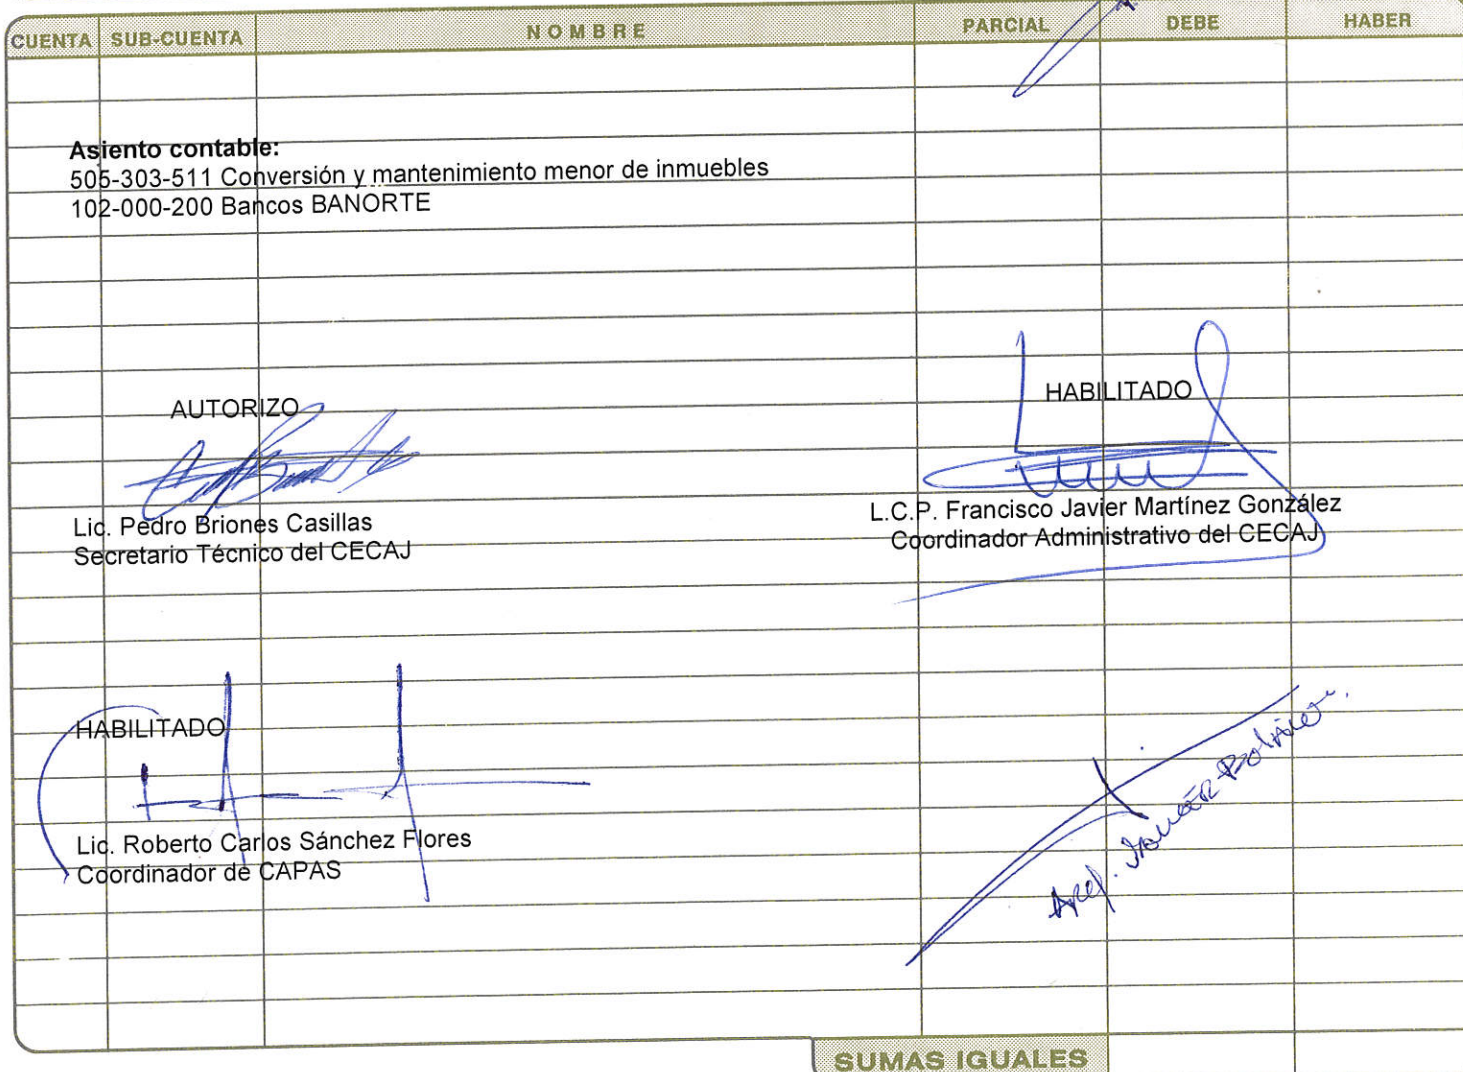 CUENTA SUB-CUENTA NOMBRE PARCIAL DEBE HABER
Asiento contable:
505-303-511 Conversión y mantenimiento menor de inmuebles
102-000-200 Bancos BANORTE
AUTORIZO
HABILITADO
Lic. Pedro Briones Casillas
Secretario Técnico del CECAJ
L.C.P. Francisco Javier Martínez González
Coordinador Administrativo del CECAJ
HABILITADO
Lic. Roberto Carlos Sánchez Flores
Coordinador de CAPAS
SUMAS IGUALES